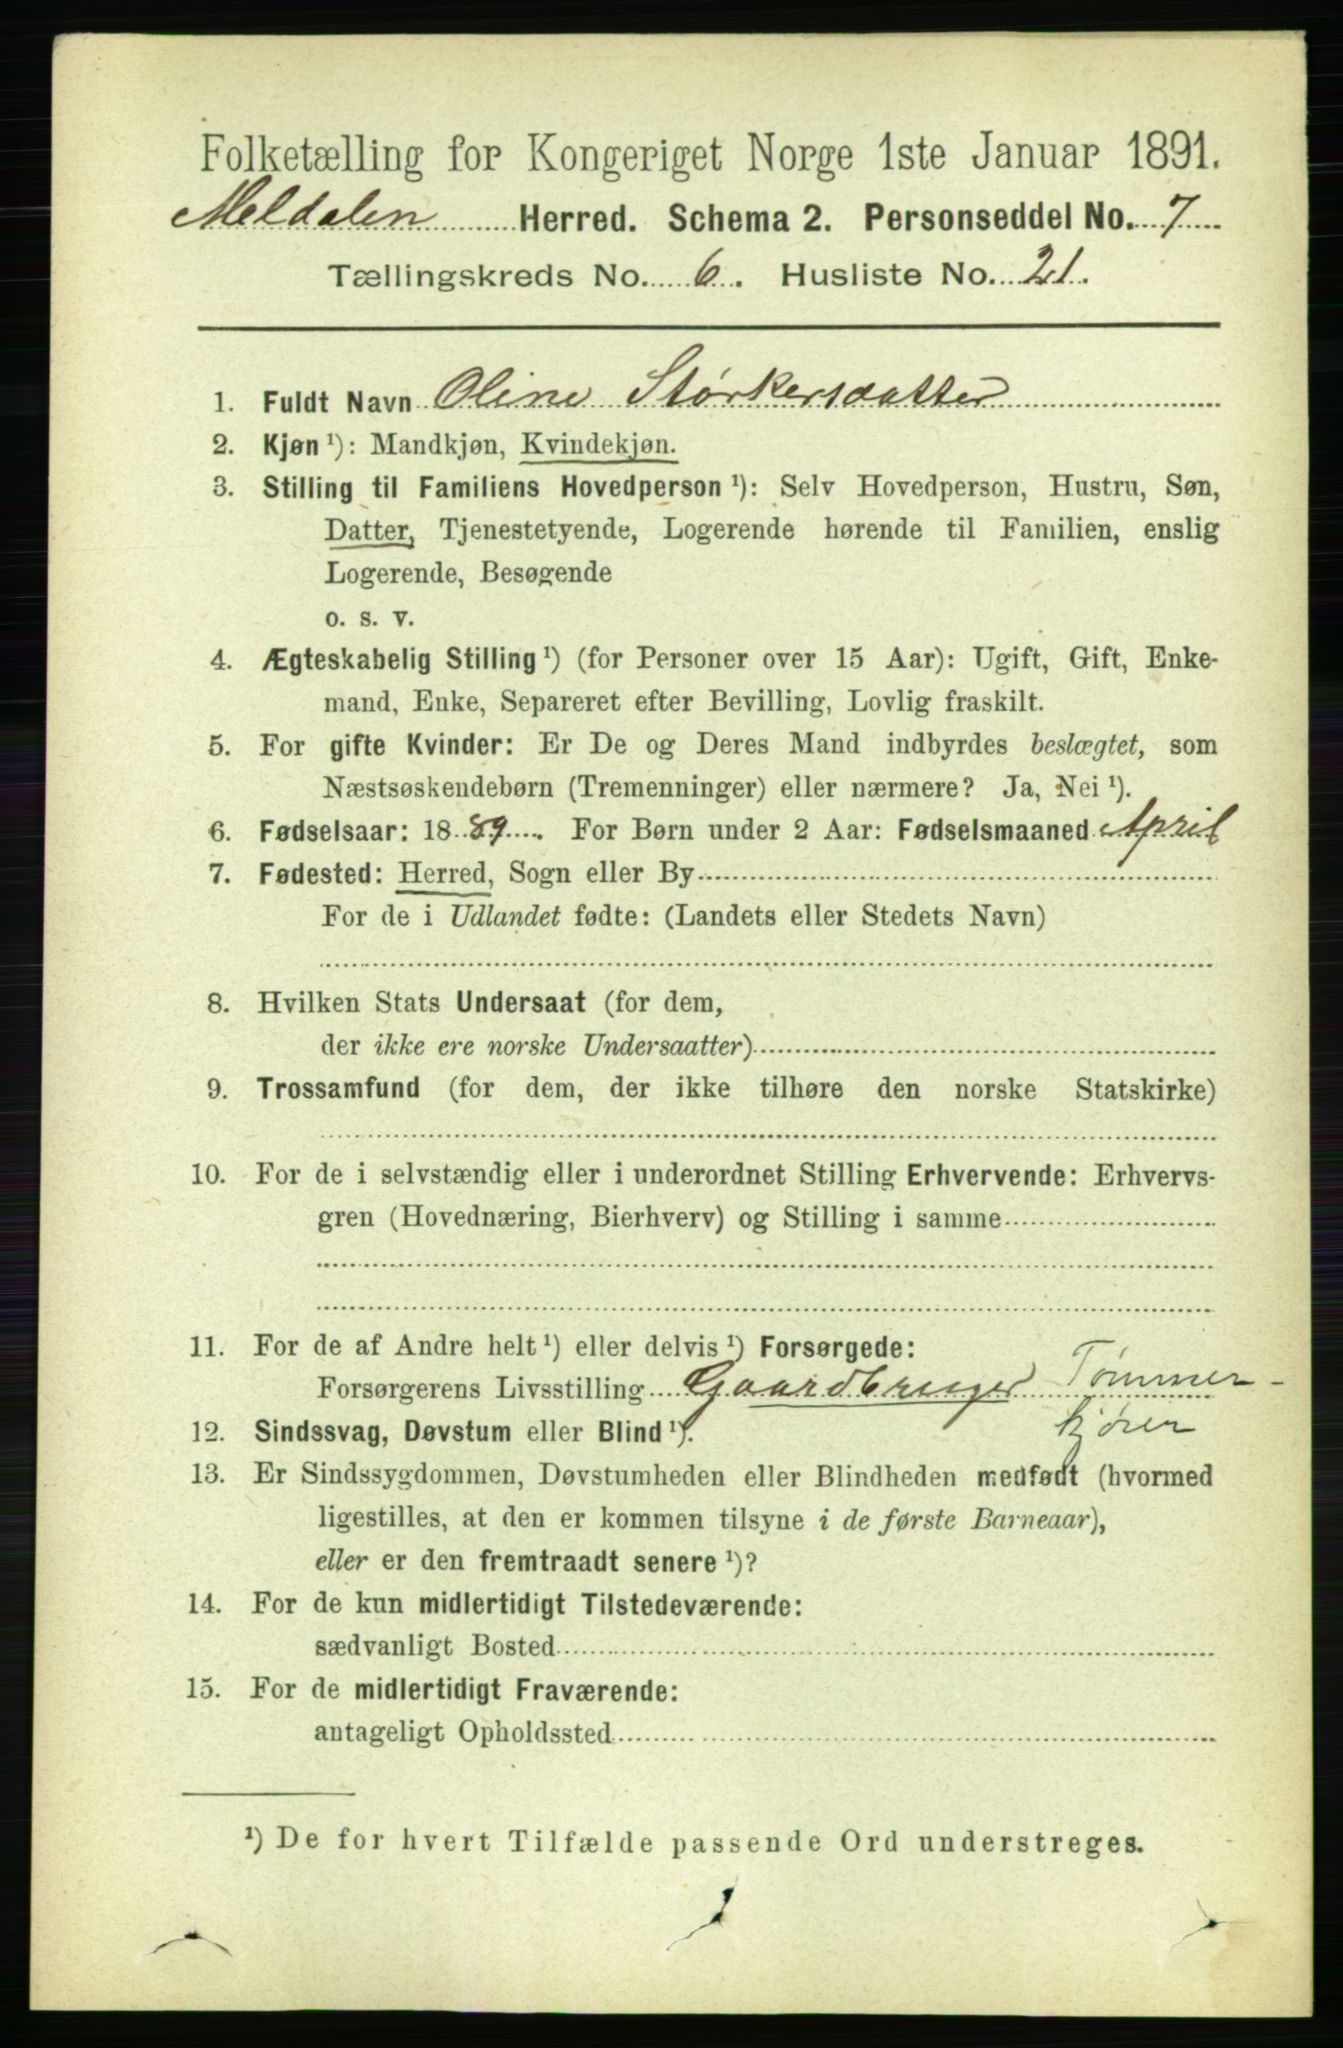 Folketælling for Kongeriget Norge 1ste Januar 1891.
Meldalen Herred. Schema 2. Personseddel No. 7
Tællingskreds No. 6. Husliste No. 21.
1. Fuldt Navn Oline Størkersdatter
2. Kjøn ¹): Mandkjøn, Kvindekjøn.
3. Stilling til Familiens Hovedperson ¹): Selv Hovedperson, Hustru, Søn,
Datter, Tjenestetyende, Logerende hørende til Familien, enslig
Logerende, Besøgende
o. s. v.
4. Ægteskabelig Stilling ¹) (for Personer over 15 Aar): Ugift, Gift, Enke-
mand, Enke, Separeret efter Bevilling, Lovlig fraskilt.
5. For gifte Kvinder: Er De og Deres Mand indbyrdes beslægtet, som
Næstsøskendebørn (Tremenninger) eller nærmere? Ja, Nei ¹).
6. Fødselsaar: 1889. For Børn under 2 Aar: Fødselsmaaned April
7. Fødested: Herred, Sogn eller By
For de i Udlandet fødte: (Landets eller Stedets Navn)
8. Hvilken Stats Undersaat (for dem,
der ikke ere norske Undersaatter)
9. Trossamfund (for dem, der ikke tilhøre den norske Statskirke)
10. For de i selvstændig eller i underordnet Stilling Erhvervende: Erhvervs-
gren (Hovednæring, Bierhverv) og Stilling i samme
11. For de af Andre helt ¹) eller delvis ¹) Forsørgede:
Forsørgerens Livsstilling Gaardbruger Tømmer-
12. Sindssvag, Døvstum eller Blind ¹). kjører
13. Er Sindssygdommen, Døvstumheden eller Blindheden medfødt (hvormed
ligestilles, at den er kommen tilsyne i de første Barneaar),
eller er den fremtraadt senere ¹)?
14. For de kun midlertidigt Tilstedeværende:
sædvanligt Bosted
15. For de midlertidigt Fraværende:
antageligt Opholdssted
¹) De for hvert Tilfælde passende Ord understreges.